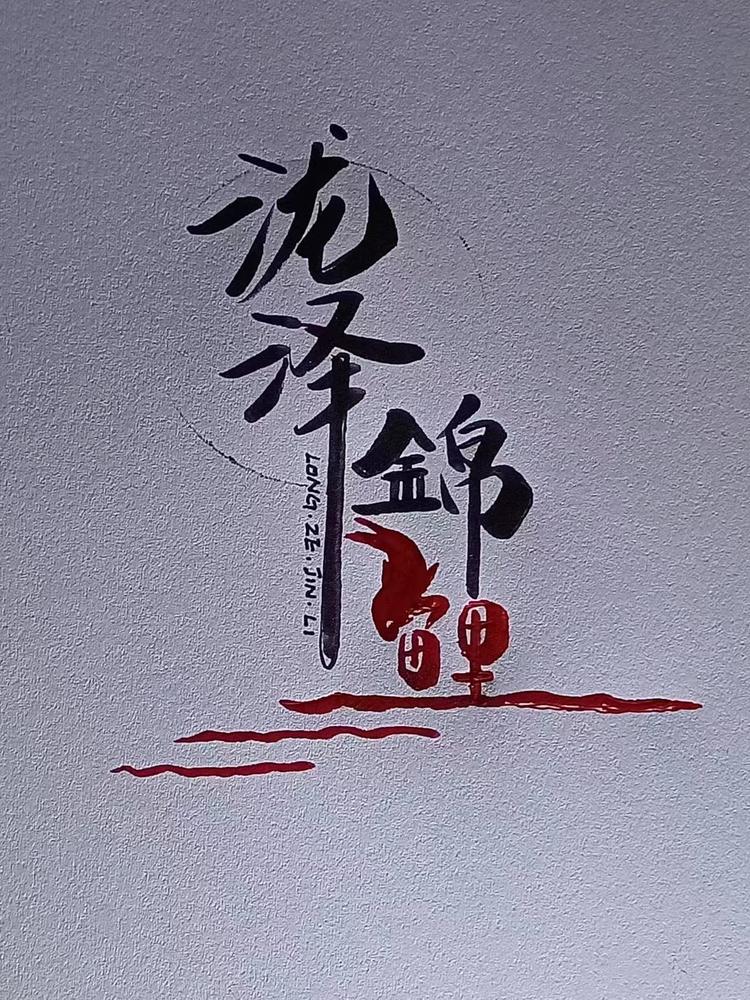 泷泽
錦鲤
LONG.ZE.JIN.LI